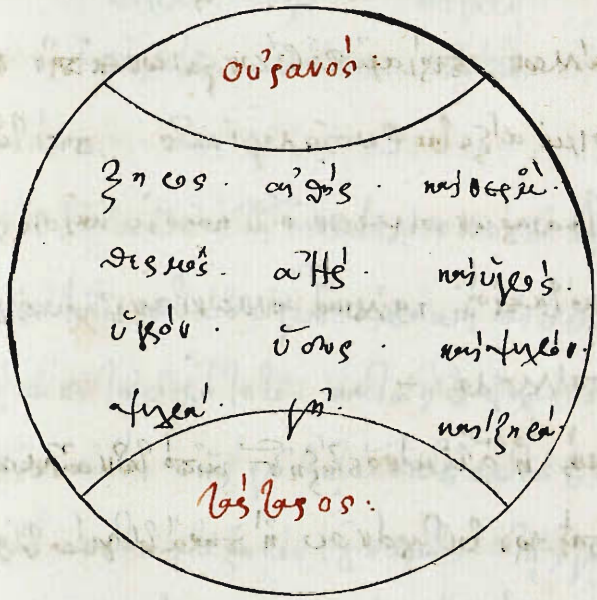 οὐρανός·
ξηρός· αἰθήρ· καὶ θερμή·
θερμός· ἀήρ· καὶ ὑγρός·
ὑγρόν· ὕδωρ καὶ ψυχρόν·
ψυχρά· γῆ· καὶ ξηρά·
τάρταρος·